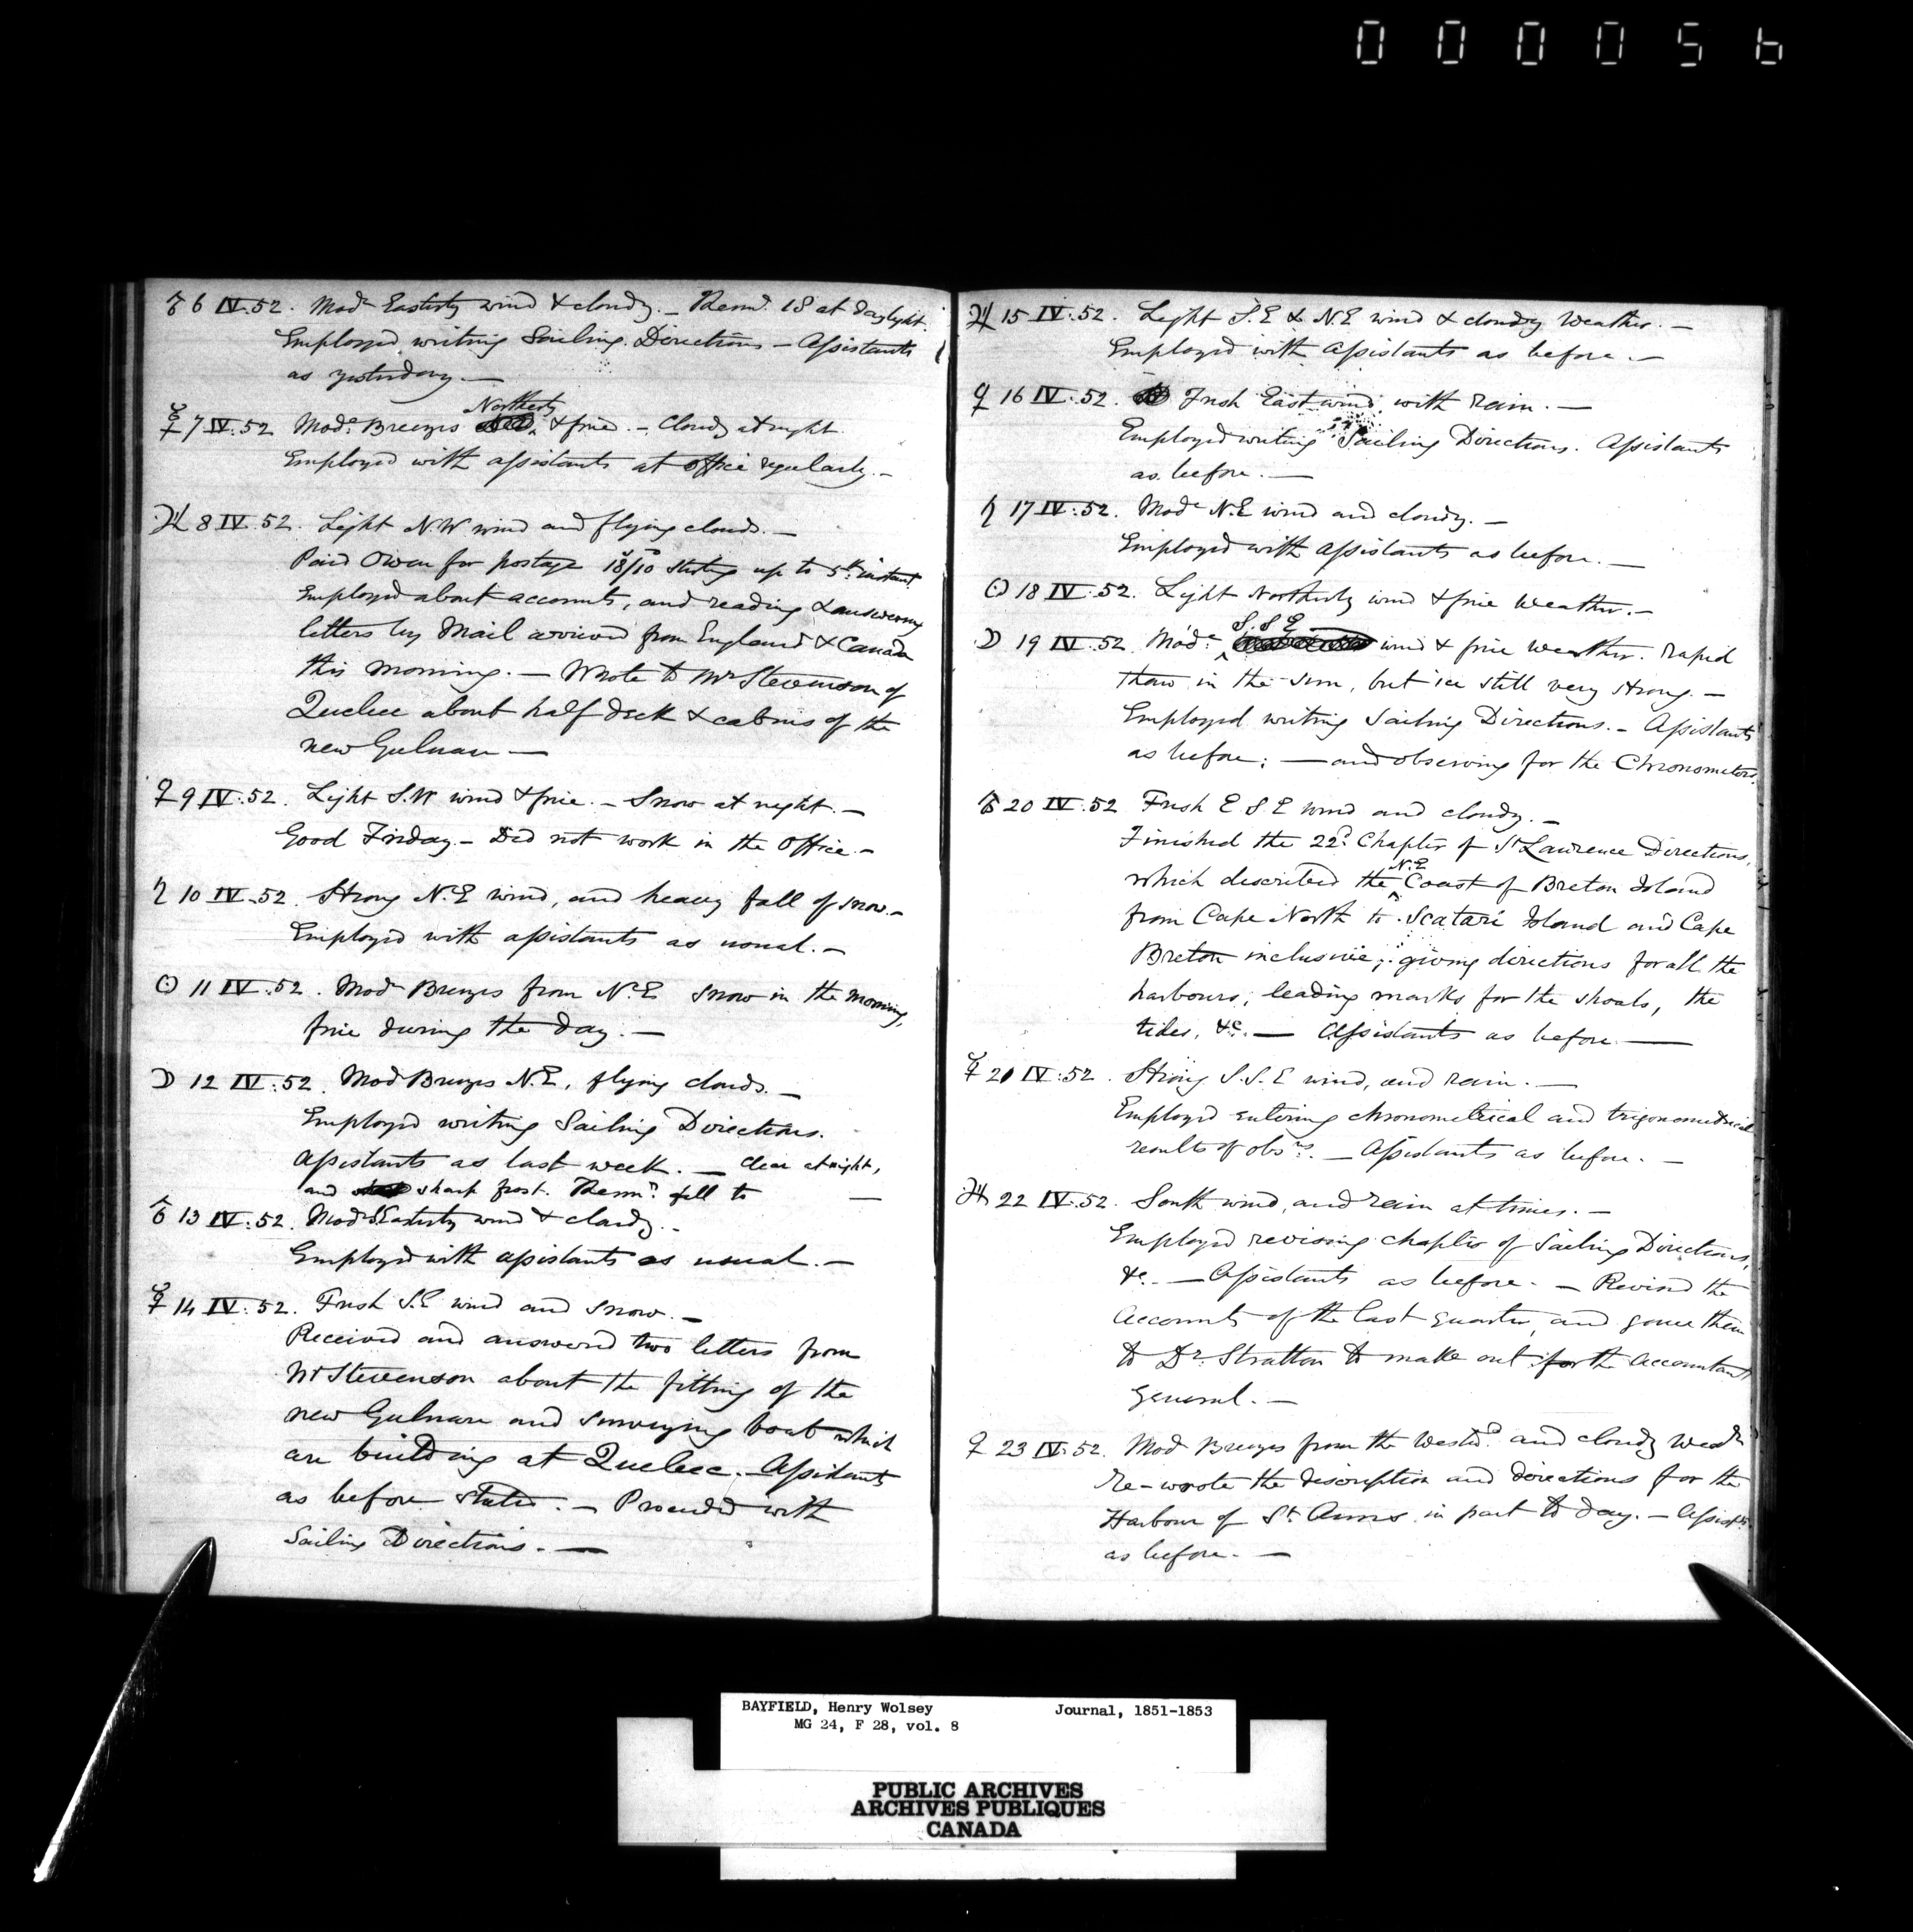 000056
♂ 6 IV. 52. Modr Easterly wind & cloudy. — Thermr. 18 at daylight.
Employed writing Sailing Directions — Assistants
as yesterday. —
Northerly
☿ 7 IV. 52 Mode. Breezes & fine. — Cloudy at night.
Employed with assistants at office regularly. —
♃ 8 IV. 52. Light N.W wind and flying clouds. —
Paid Owen for postage 18/10 sterling up to 5th. instant
Employed about accounts, and reading & answering
letters by Mail arrived from England & Canada
this morning. — Wrote to Mr Stevenson of
Quebec about half deck & cabins of the
new Gulnare —
♀ 9 IV. 52. Light S.W wind & fine. — Snow at night. —
Good Friday — Did not work in the Office. —
♄ 10 IV. 52. Strong N.E wind, and heavy fall of snow. —
Employed with assistants as usual. —
☉ 11 IV. 52. Modr Breezes from N.E snow in the morning,
fine during the day. —
☽ 12 IV. 52. Mod Breezes N.E, flying clouds. —
Employed writing Sailing Directions.
Assistants as last week. — Clear at night,
and sharp frost. Thermr. fell to —
♂ 13 IV. 52. Modr S.Easterly wind & cloudy. —
Employed with assistants as usual. —
☿ 14 IV. 52. Fresh S.E wind and snow. —
Received and answered two letters from
Mr Stevenson about the fitting of the
new Gulnare and surveying boat which
are building at Quebec. — Assistants
as before stated. — Proceeded with
Sailing Directions. —
♃ 15 IV. 52. Light S.E & N.E wind & cloudy Weather. —
Employed with Assistants as before. —
♀ 16 IV. 52. Fresh East wind, with rain. —
Employed writing Sailing Directions. Assistants
as before. —
♄ 17 IV. 52. Mode N.E wind and cloudy. —
Employed with Assistants as before. —
☉ 18 IV. 52. Light Northerly wind & fine Weather. —
S.S E
☽ 19 IV. 52 Mode. wind & fine weather. Rapid
thaw in the sun, but ice still very strong. —
Employed writing Sailing Directions. — Assistants
as before; — and observing for the Chronometers.
♂ 20 IV. 52 Fresh E S E wind and cloudy. —
Finished the 22d. Chapter of St Lawrence Directions,
N.E
which described the Coast of Breton Island
from Cape North to Scatari Island and Cape
Breton inclusive; giving directions for all the
harbours, leading marks for the shoals, the
tides, &c. — Assistants as before —
☿ 21 IV. 52. Strong S.S.E wind, and rain. —
Employed entering chronometrical and trigonometrical
results of obsns. — Assistants as before. —
♃ 22 IV. 52. South wind, and rain at times. —
Employed revising chapter of Sailing Directions,
&c. — Assistants as before. — Revised the
Accounts of the last quarter, and gave them
to Dr. Stratton to make out for the Accountant
General. —
♀ 23 IV. 52. Mod Breezes from the Westwd. and cloudy Weathr
Re-wrote the description and directions for the
Harbour of St Anns in part to day. — Assists.
as before. —
BAYFIELD, Henry Wolsey Journal, 1851-1853
MG 24, F 28, vol. 8
PUBLIC ARCHIVES
ARCHIVES PUBLIQUES
CANADA